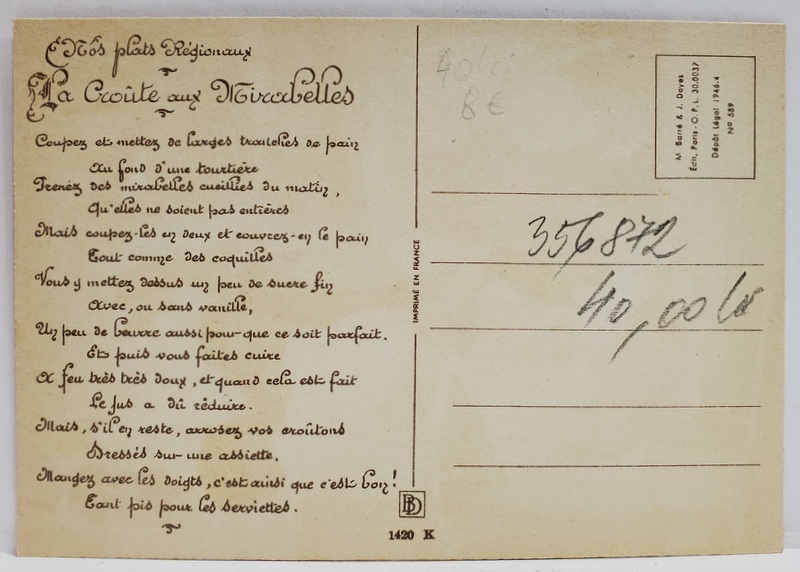 Nos plats Régionaux
La Croûte aux Mirabelles
Coupez et mettez de larges tranches de pain
Au fond d'une tourtière
Prenez des mirabelles cueillies du matin,
Qu'elles ne soient pas entières
Mais coupez-les en deux et couvrez-en le pain
Tout comme des coquilles
Vous y mettez dessus un peu de sucre fin
Avec, ou sans vanille,
Un peu de beurre aussi pour que ce soit parfait.
Et puis vous faites cuire
A feu très très doux, et quand cela est fait
Le jus a dû réduire.
Mais, s'il en reste, arrosez vos croûtons
Dressés sur une assiette.
Mangez avec les doigts, c'est ainsi que c'est bon!
Tant pis pour les serviettes.
IMPRIMÉ EN FRANCE
BD
1420 K
40 lei
8 €
M. Barré & J. Dayez
Édit. Paris - O.P.L. 30.0037
Dépôt Légal 1946-4
N° 589
356872
40,00 lei